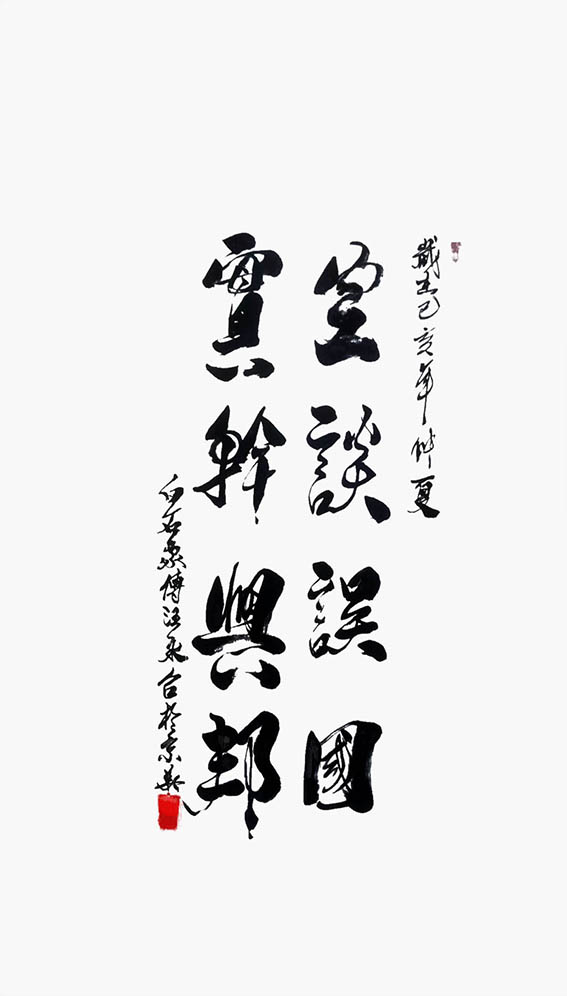 歲在己亥年仲夏
空談誤國
實幹興邦
白石象傳汪永台於京華